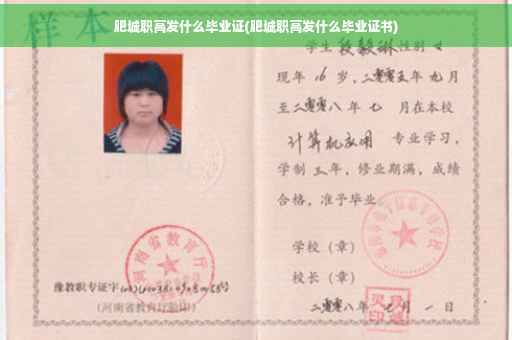 肥城职高发什么毕业证(肥城职高发什么毕业证书)
样本
学生段毅琳性别女
现年16岁，二零零五年九月
至二零零八年七月在本校
计算机应用 专业学习，
学制三年，修业期满，成绩
合格，准予毕业
学校（章）
校长（章）
二零零八年七月一日
河南省教育厅
豫教职专证字
(河南省教育厅验印)